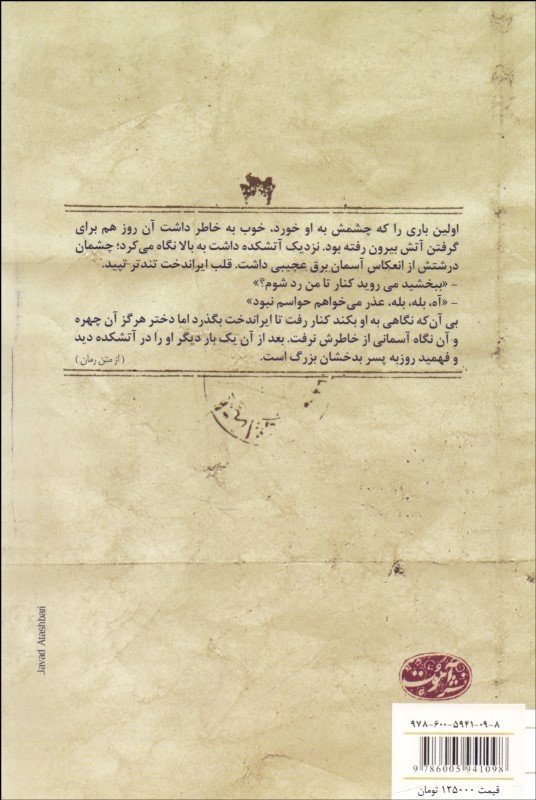 اولین باری را که چشمش به او خورد، خوب به خاطر داشت آن روز هم برای
گرفتن آتش بیرون رفته بود. نزدیک آتشکده داشت به بالا نگاه می‌کرد؛ چشمان
درشتش از انعکاس آسمان برق عجیبی داشت. قلب ایراندخت تندتر تپید.
- «ببخشید می روید کنار تا من رد شوم؟»
- «آه، بله، بله، عذر می‌خواهم حواسم نبود»
بی آن‌که نگاهی به او بکند کنار رفت تا ایراندخت بگذرد اما دختر هرگز آن چهره
و آن نگاه آسمانی از خاطرش نرفت. بعد از آن یک بار دیگر او را در آتشکده دید
و فهمید روزبه پسر بدخشان بزرگ است.
( از متن رمان )
Javad Atashbari
نشر آموت
۹۷۸-۶۰۰-۵۹۴۱-۰۹-۸
9 786005 941098
قیمت ۱۲۵۰۰۰ تومان